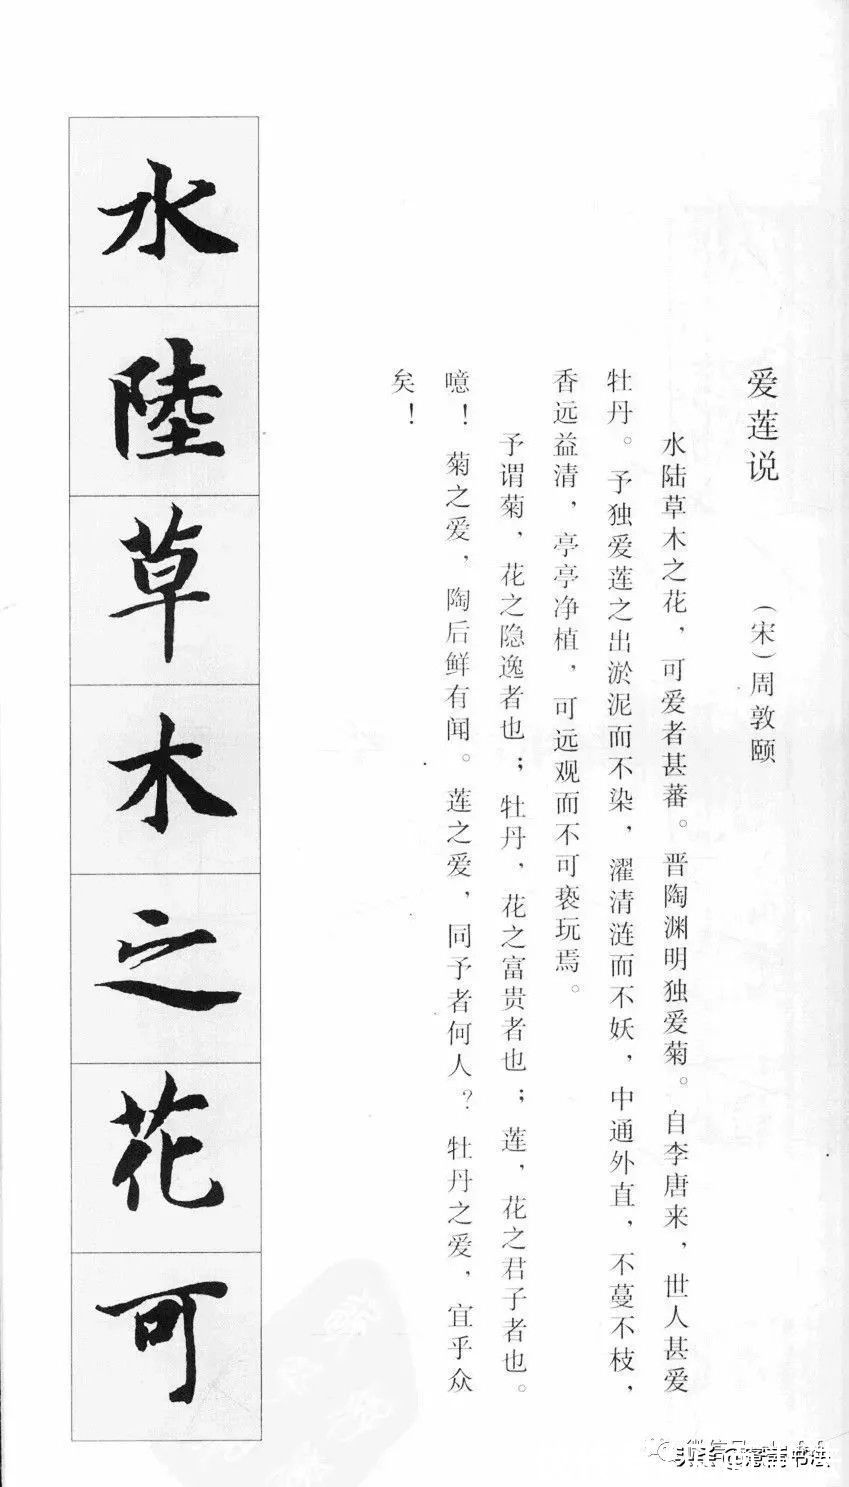 爱莲说 （宋）周敦颐
水陆草木之花，可爱者甚蕃。晋陶渊明独爱菊。自李唐来，世人甚爱
牡丹。予独爱莲之出淤泥而不染，濯清涟而不妖，中通外直，不蔓不枝，
香远益清，亭亭净植，可远观而不可亵玩焉。
予谓菊，花之隐逸者也；牡丹，花之富贵者也；莲，花之君子者也。
噫！菊之爱，陶后鲜有闻。莲之爱，同予者何人？牡丹之爱，宜乎众
矣！
水陸草木之花可
头条 @ 书法